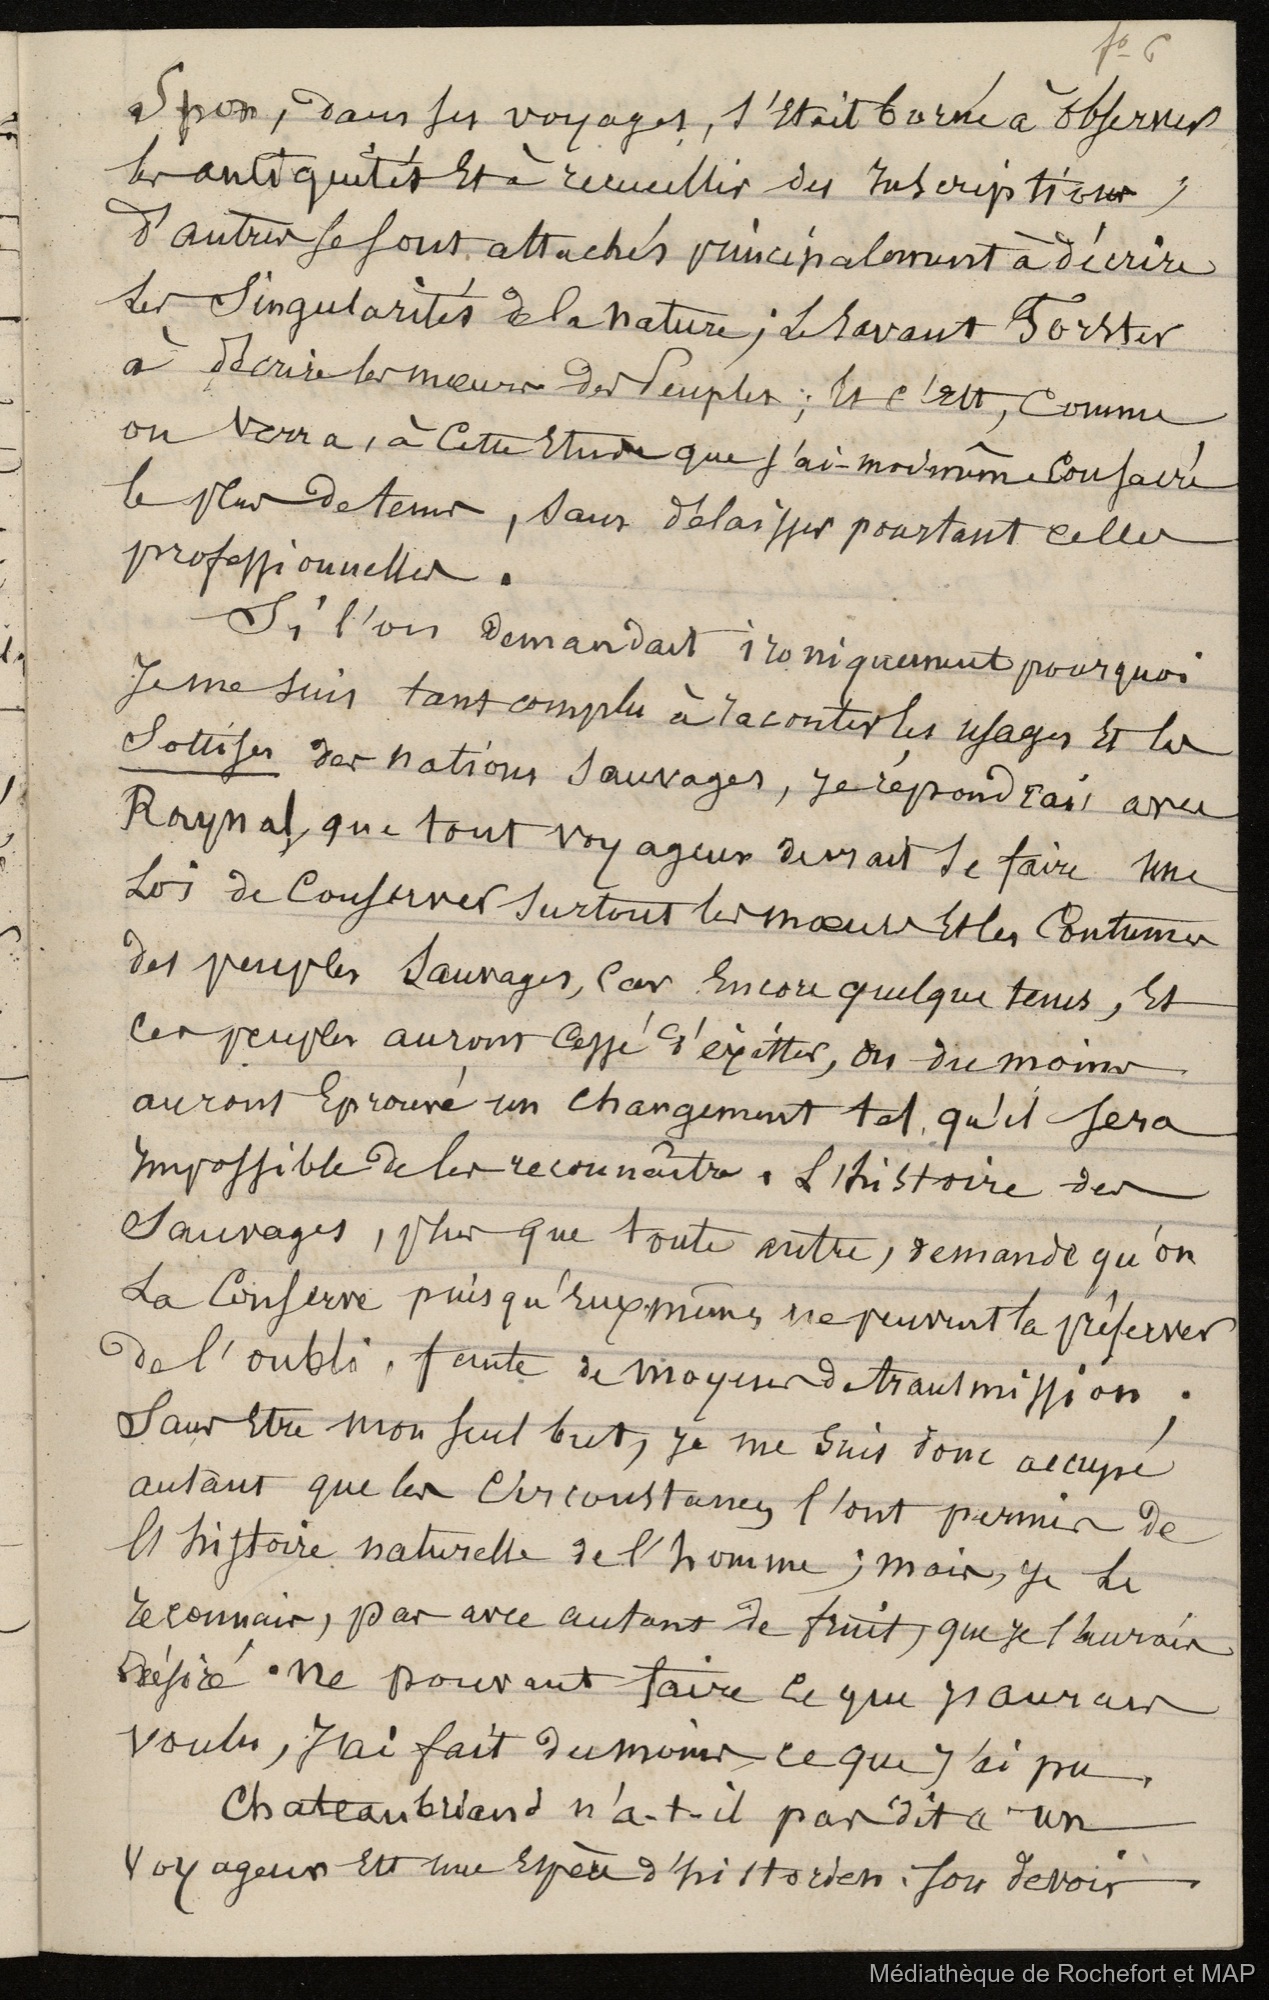 fo 6
Spon, dans ses voyages, s'était borné à observer
les antiquités et à recueillir des inscriptions ;
d'autres se sont attachés principalement à décrire
les singularités de la nature ; le savant Forster
à décrire les mœurs des Peuples ; et c'est, comme
on verra, à cette étude que j'ai-moi même consacré
le plus de tems, sans délaisser pourtant celles
professionnelles.
Si l'on demandait ironiquement pourquoi
je me suis tant complu à raconter les usages et les
sottises des nations sauvages, je répondrais avec
Raynal, que tout voyageur devrait se faire une
loi de conserver surtout les mœurs et les coutumes
des peuples sauvages, car encore quelque tems, et
ces peuples auront cessé d'exister, ou du moins
auront éprouvé un changement tel, qu'il sera
impossible de les reconnaître. L'histoire des
sauvages, plus que toute autre, demande qu'on
la conserve puisqu'eux mêmes ne peuvent la préserver
de l'oubli, faute de moyens de transmission ;
sans être mon seul but, je me suis donc occupé
autant que les circonstances l'ont permis de
l'histoire naturelle de l'homme ; mais, je le
reconnais, pas avec autant de fruit, que je l'aurais
désiré. Ne pouvant faire ce que j'aurais
voulu, j'ai fait du moins ce que j'ai pu.
Chateaubriand n'a-t-il pas dit « un
voyageur est une espèce d'historien. Son devoir
Médiathèque de Rochefort et MAP